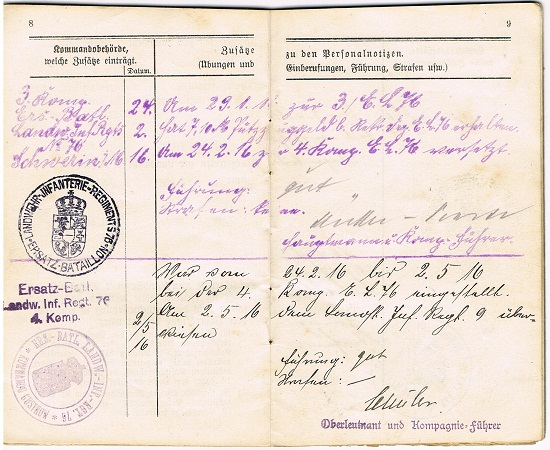 8
Kommandobehörde,
welche Zusätze einträgt.
Datum.
Zusätze
(Übungen und
3. Komp.
Ers. Batl.
Landw. Inf. Rgts
No 76
Schwerin i/M
24.
2.
16.
Am 29.1.1
Am 24.2.16
Führung:
Strafen:
LANDWEHR-INFANTERIE-REGIMENTS 76
ERSATZ-BATAILLON
Ersatz-Batl.
Landw. Inf. Regt. 76
4. Komp.
2/5
16
War vom
bei der 4.
Am 2.5.16
wiesen
ERS. BATL. LANDW. INF. RGT. 76
9
zu den Personalnotizen.
Einberufungen, Führung, Strafen usw.)
zur 3./E.L.76
erhalten.
4. Komp. E.L.76 versetzt
gut
Hauptmann u. Komp. Führer.
24.2.16 bis 2.5.16
Komp. E.L.76 eingestellt.
dem Landst. Inf. Regt. 9 über-
Führung: gut
Strafen: —
Oberleutnant und Kompagnie-Führer